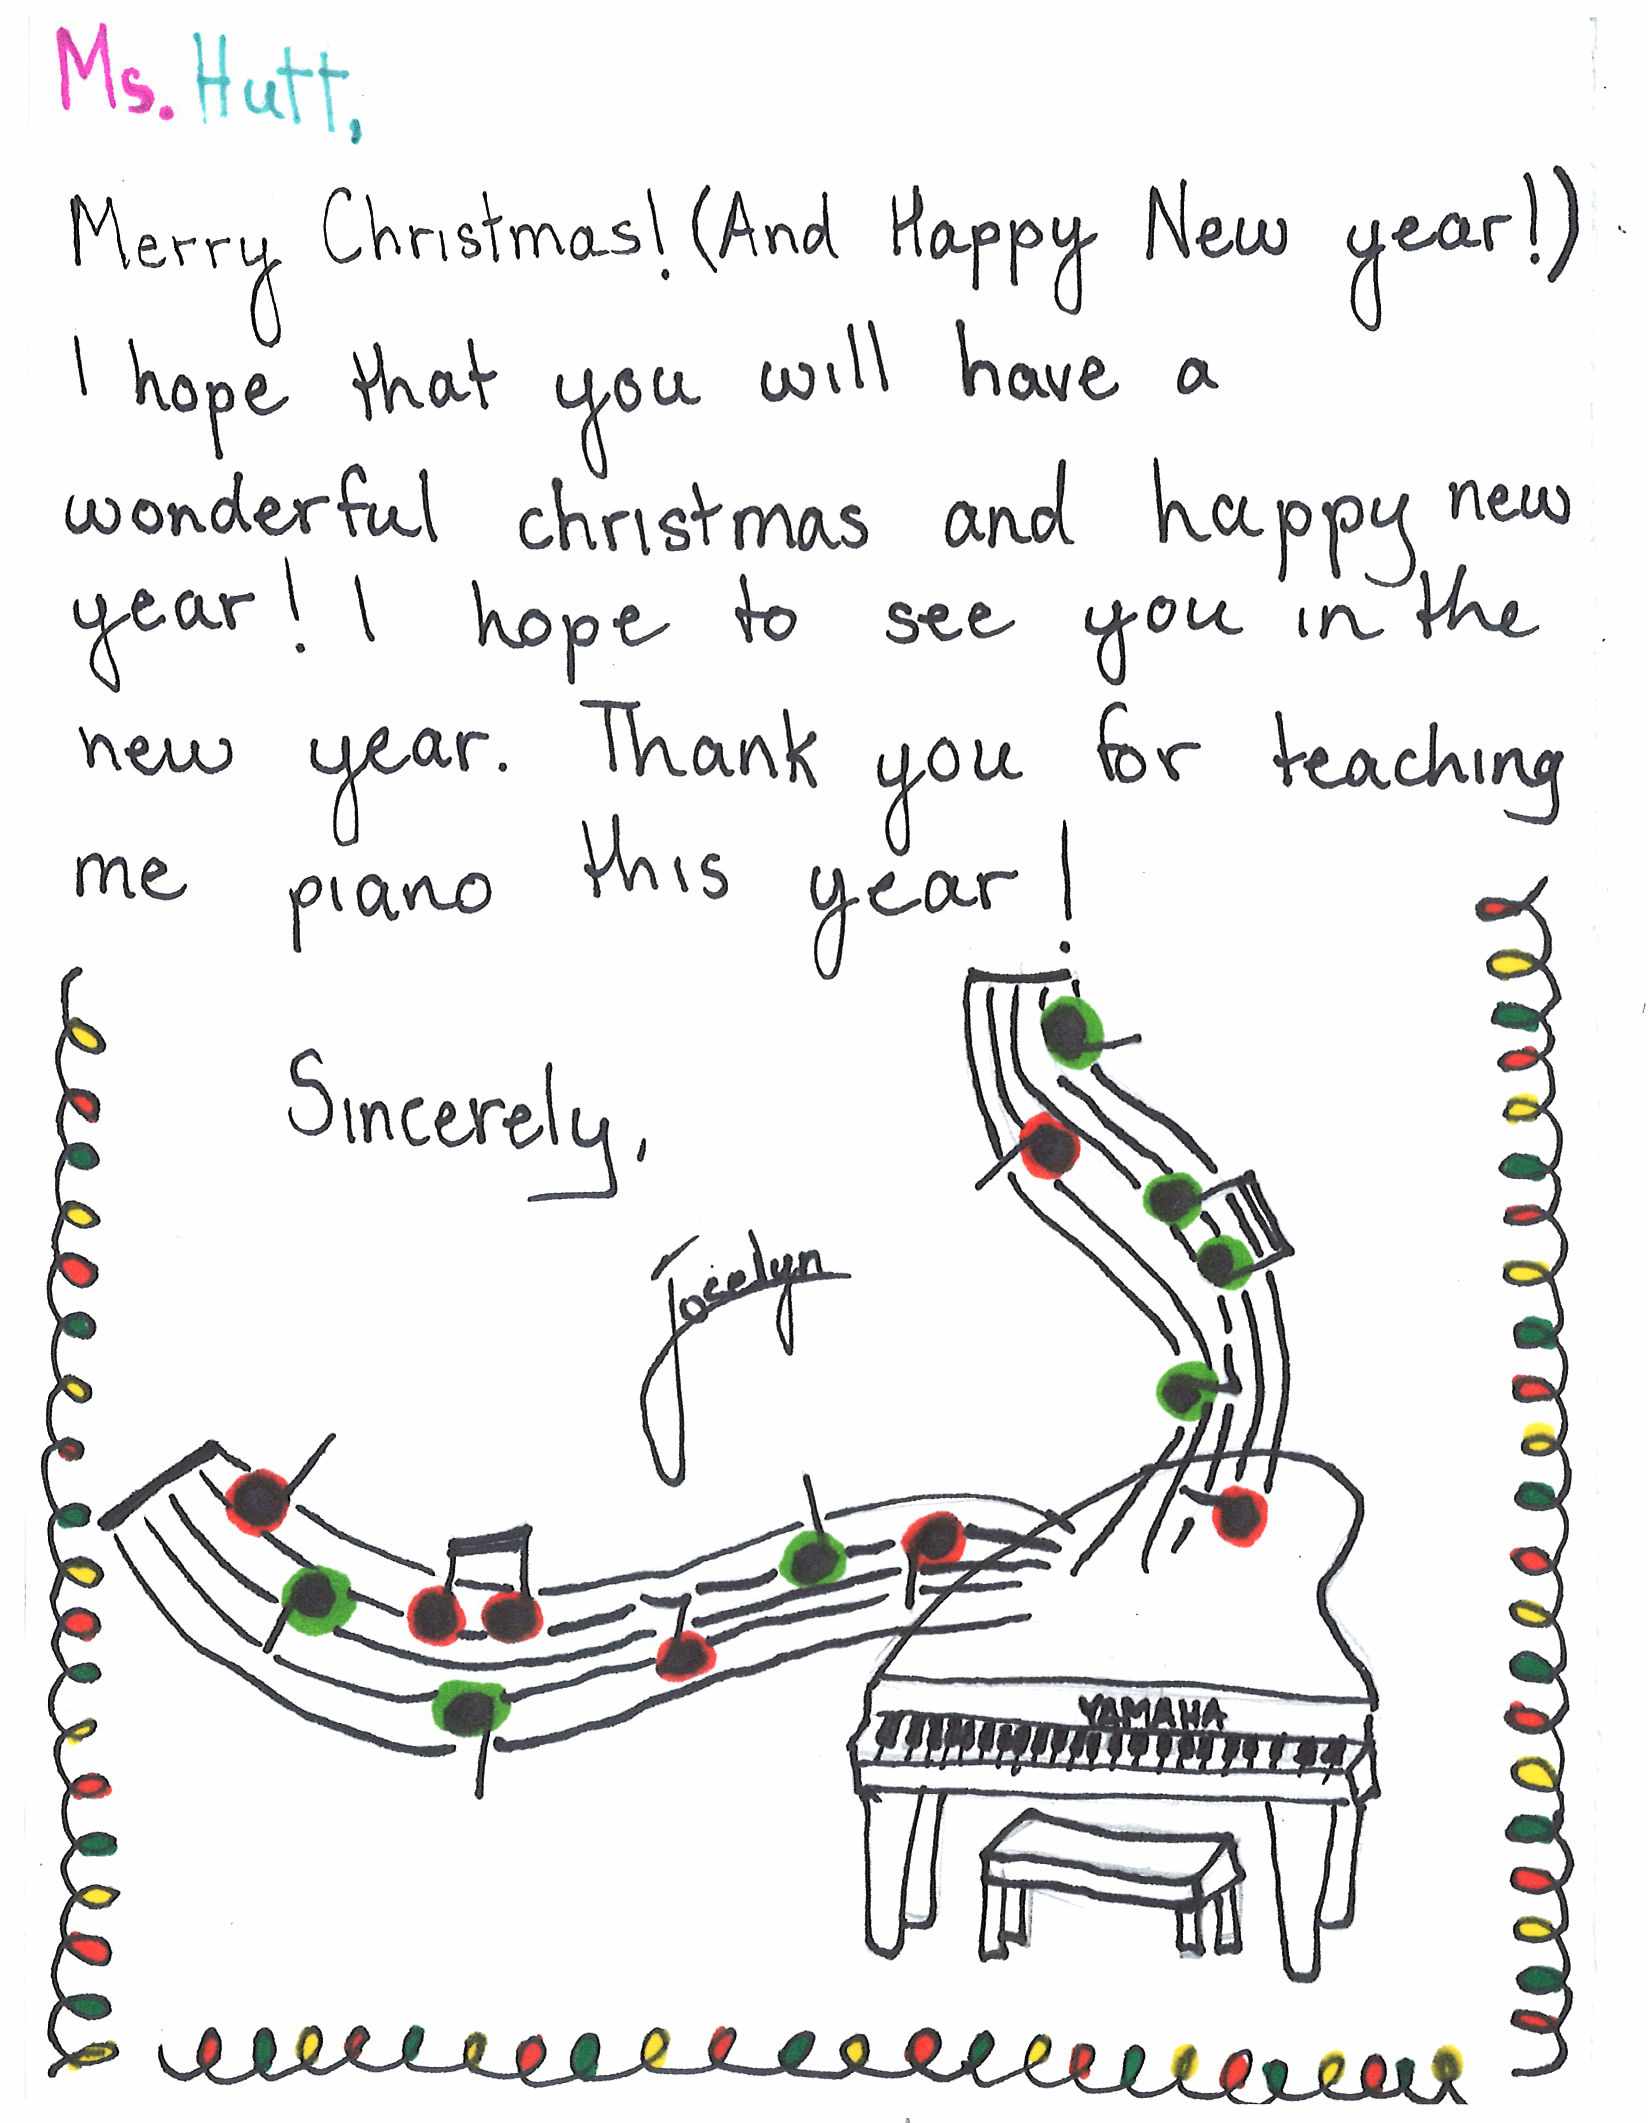 Ms. Hutt,
Merry Christmas! (And Happy New year!)
I hope that you will have a
wonderful christmas and happy new
year! I hope to see you in the
new year. Thank you for teaching
me piano this year!
Sincerely,
Jocelyn
YAMAHA